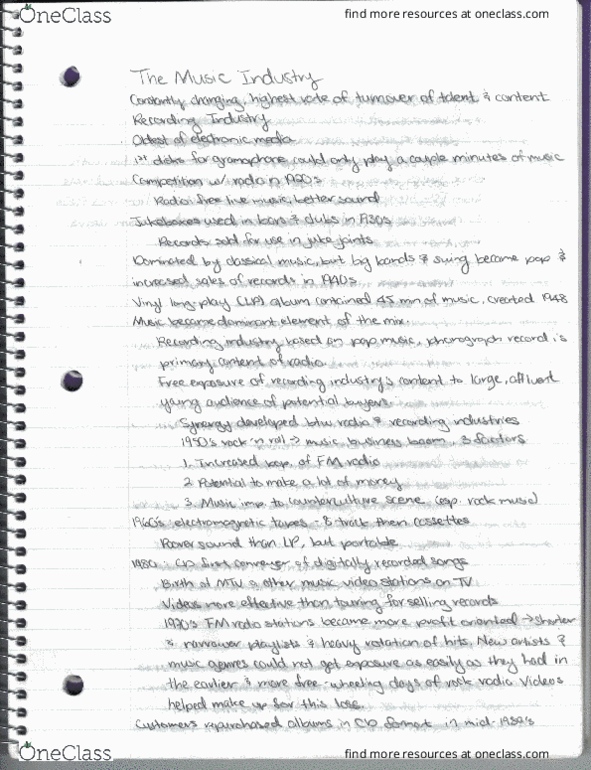 OneClass
find more resources at oneclass.com
The Music Industry
Constantly changing, highest rate of turnover of talent & content
Recording Industry
Oldest of electronic media
1st disks for gramophone could only play a couple minutes of music
Competition w/ radio in 1920s
Radio: free live music, better sound
Jukeboxes used in bars & clubs in 1930s
Records sold for use in juke joints
Dominated by classical music, but big bands & swing became pop &
increased sales of records in 1940s
Vinyl long-play (LP) album contained 45 min of music, created 1948
Music became dominant element of the mix
Recording industry based on pop music, phonograph record is
primary content of radio
Free exposure of recording industry's content to large, affluent
young audience of potential buyers
Synergy developed btw radio & recording industries
1950's rock 'n roll → music business boom, 3 factors
1. Increased pop. of FM radio
2. Potential to make a lot of money
3. Music imp. to counterculture scene (esp. rock music)
1960's electromagnetic tapes - 8 track then cassettes
Poorer sound than LP, but portable
1980: CD first conveyor of digitally recorded songs
Birth of MTV & other music video stations on TV
Videos more effective than touring for selling records
1970's FM radio stations became more profit oriented → shorter
& narrower playlists & heavy rotation of hits. New artists &
music genres could not get exposure as easily as they had in
the earlier & more free-wheeling days of rock radio. Videos
helped make up for this loss.
Customers repurchased albums in CD format in mid-1980's
OneClass
find more resources at oneclass.com